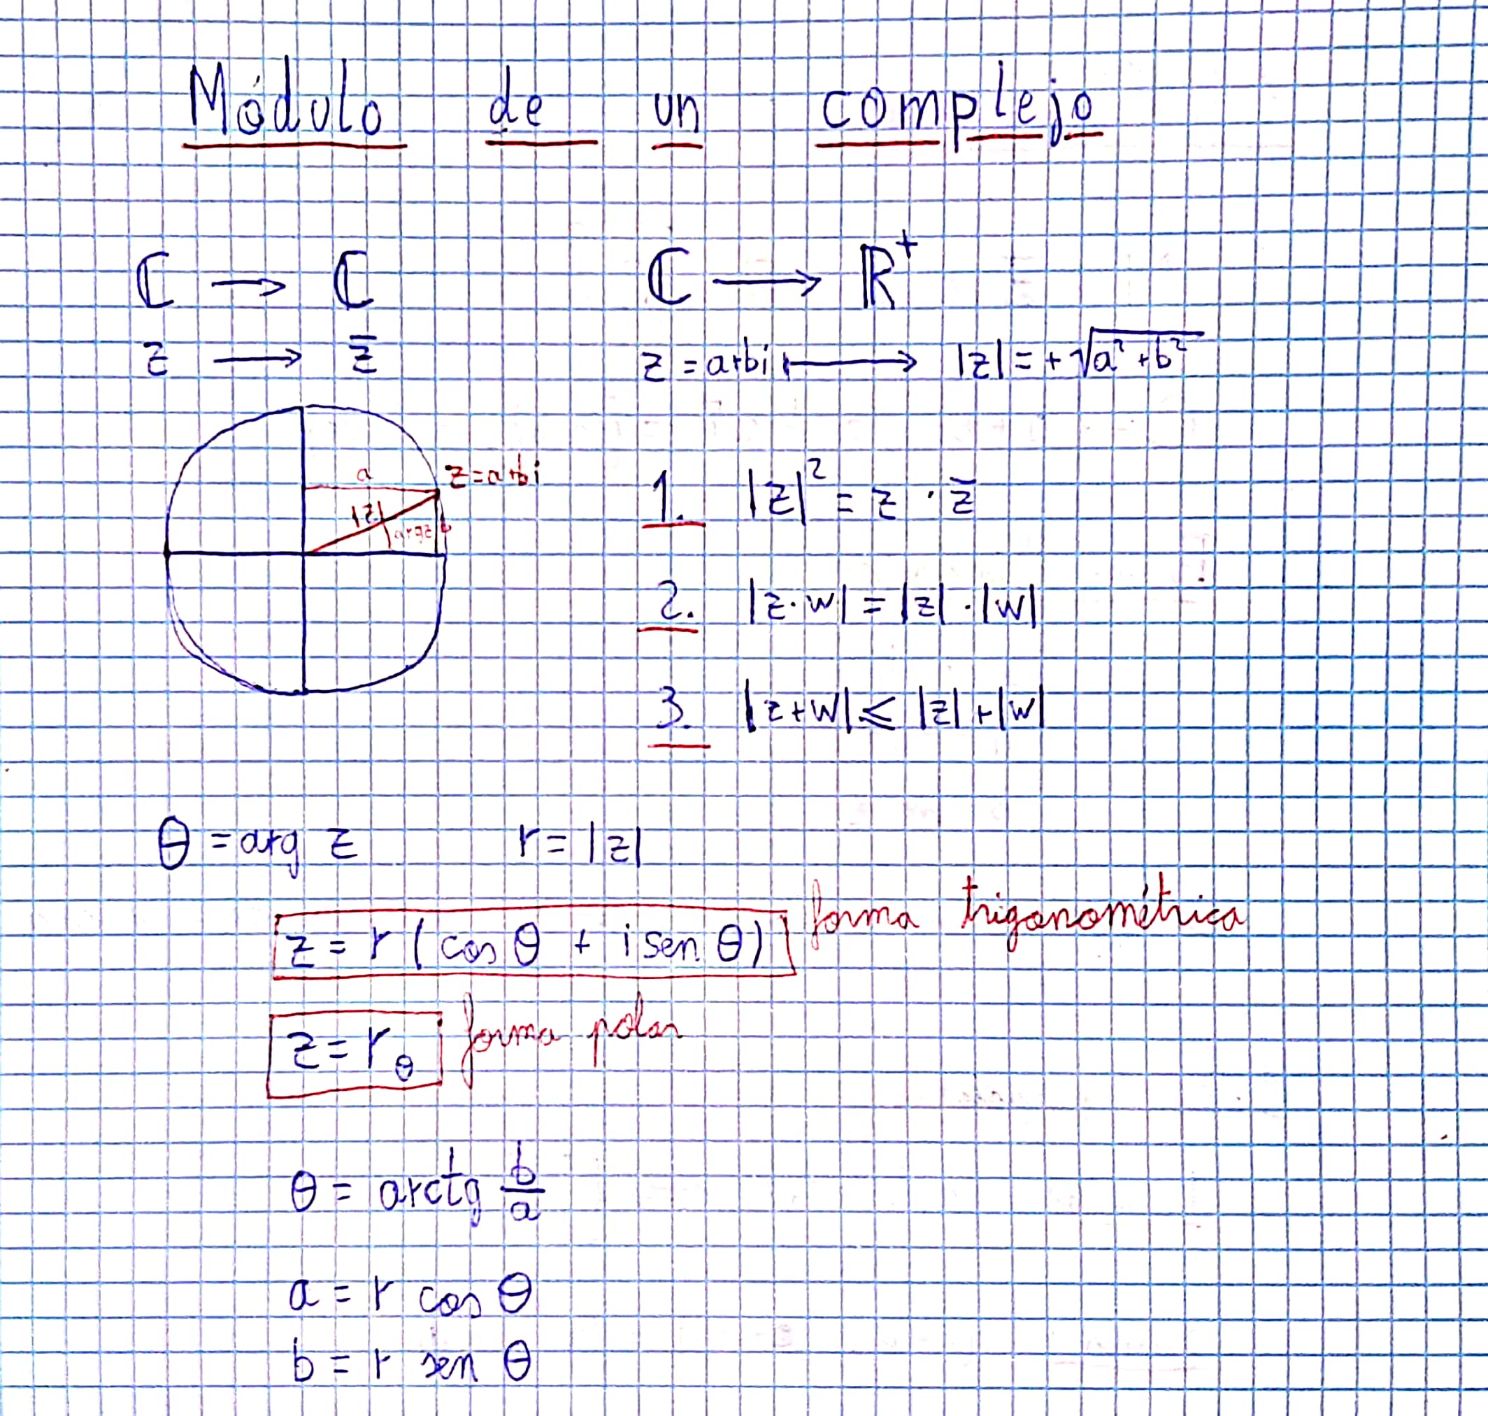 Módulo de un complejo
ℂ → ℂ
z → z̄
ℂ → ℝ⁺
z = a+bi ↦ |z| = +√(a² + b²)
a
z=a+bi
|z|
arg z
b
1. |z|² = z · z̄
2. |z·w| = |z| · |w|
3. |z+w| ≤ |z| + |w|
θ = arg z r = |z|
z = r (cos θ + i sen θ) forma trigonométrica
z = r_θ forma polar
θ = arctg b/a
a = r cos θ
b = r sen θ